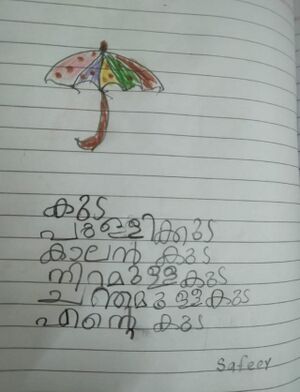 കുട
പുള്ളിക്കുട
കാലൻ കുട
നിറമുള്ളകുട
ചന്തമുള്ളകുട
എന്റെ കുട
Safeer